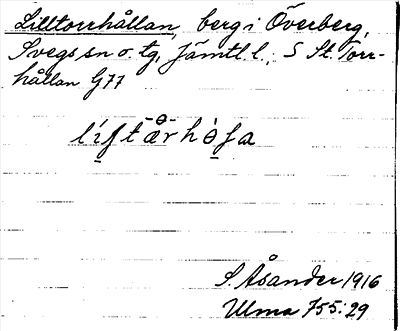 Lilltorrhållan, berg i Överberg,
Svegs sn o. tg, Jämtl. l., S St. Torr-
hållan G77
S. Åsander 1916
Ulma 755:29